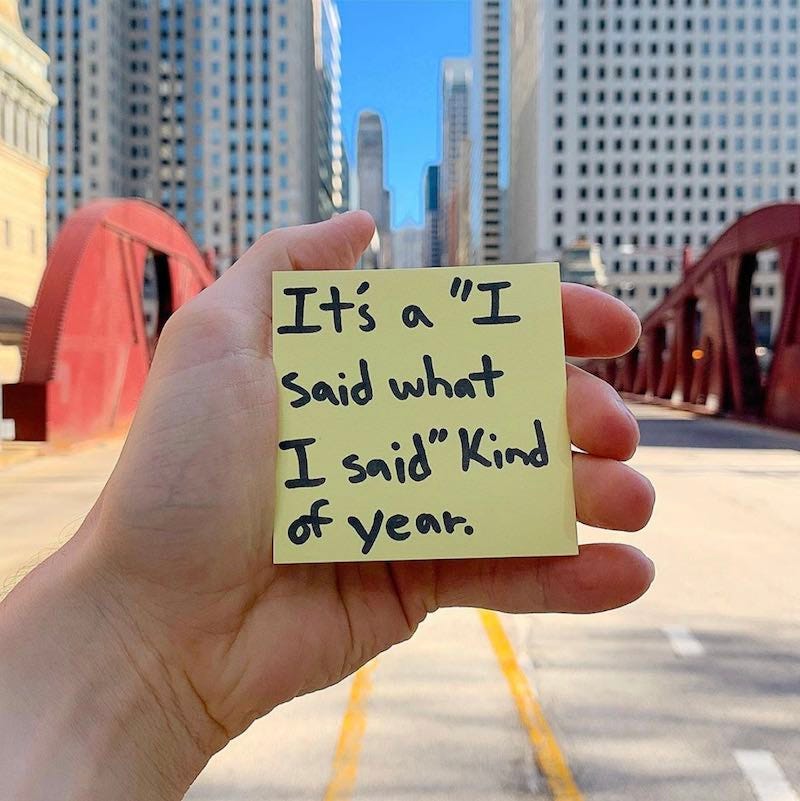 It's a "I
said what
I said" Kind
of year.